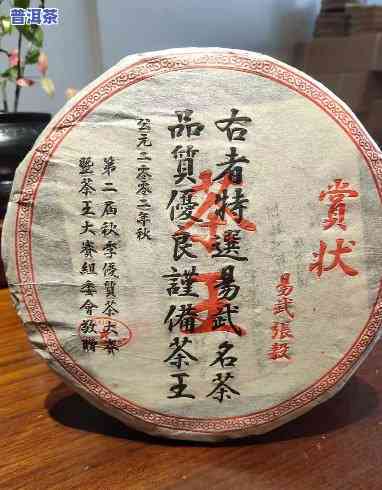 普洱茶
賞状
易武張毅
茶王
右者特選易武名茶
品質優良謹備茶王
公元二〇〇二年秋
第二届秋季優質茶大賽
暨茶王大賽組委會敬贈